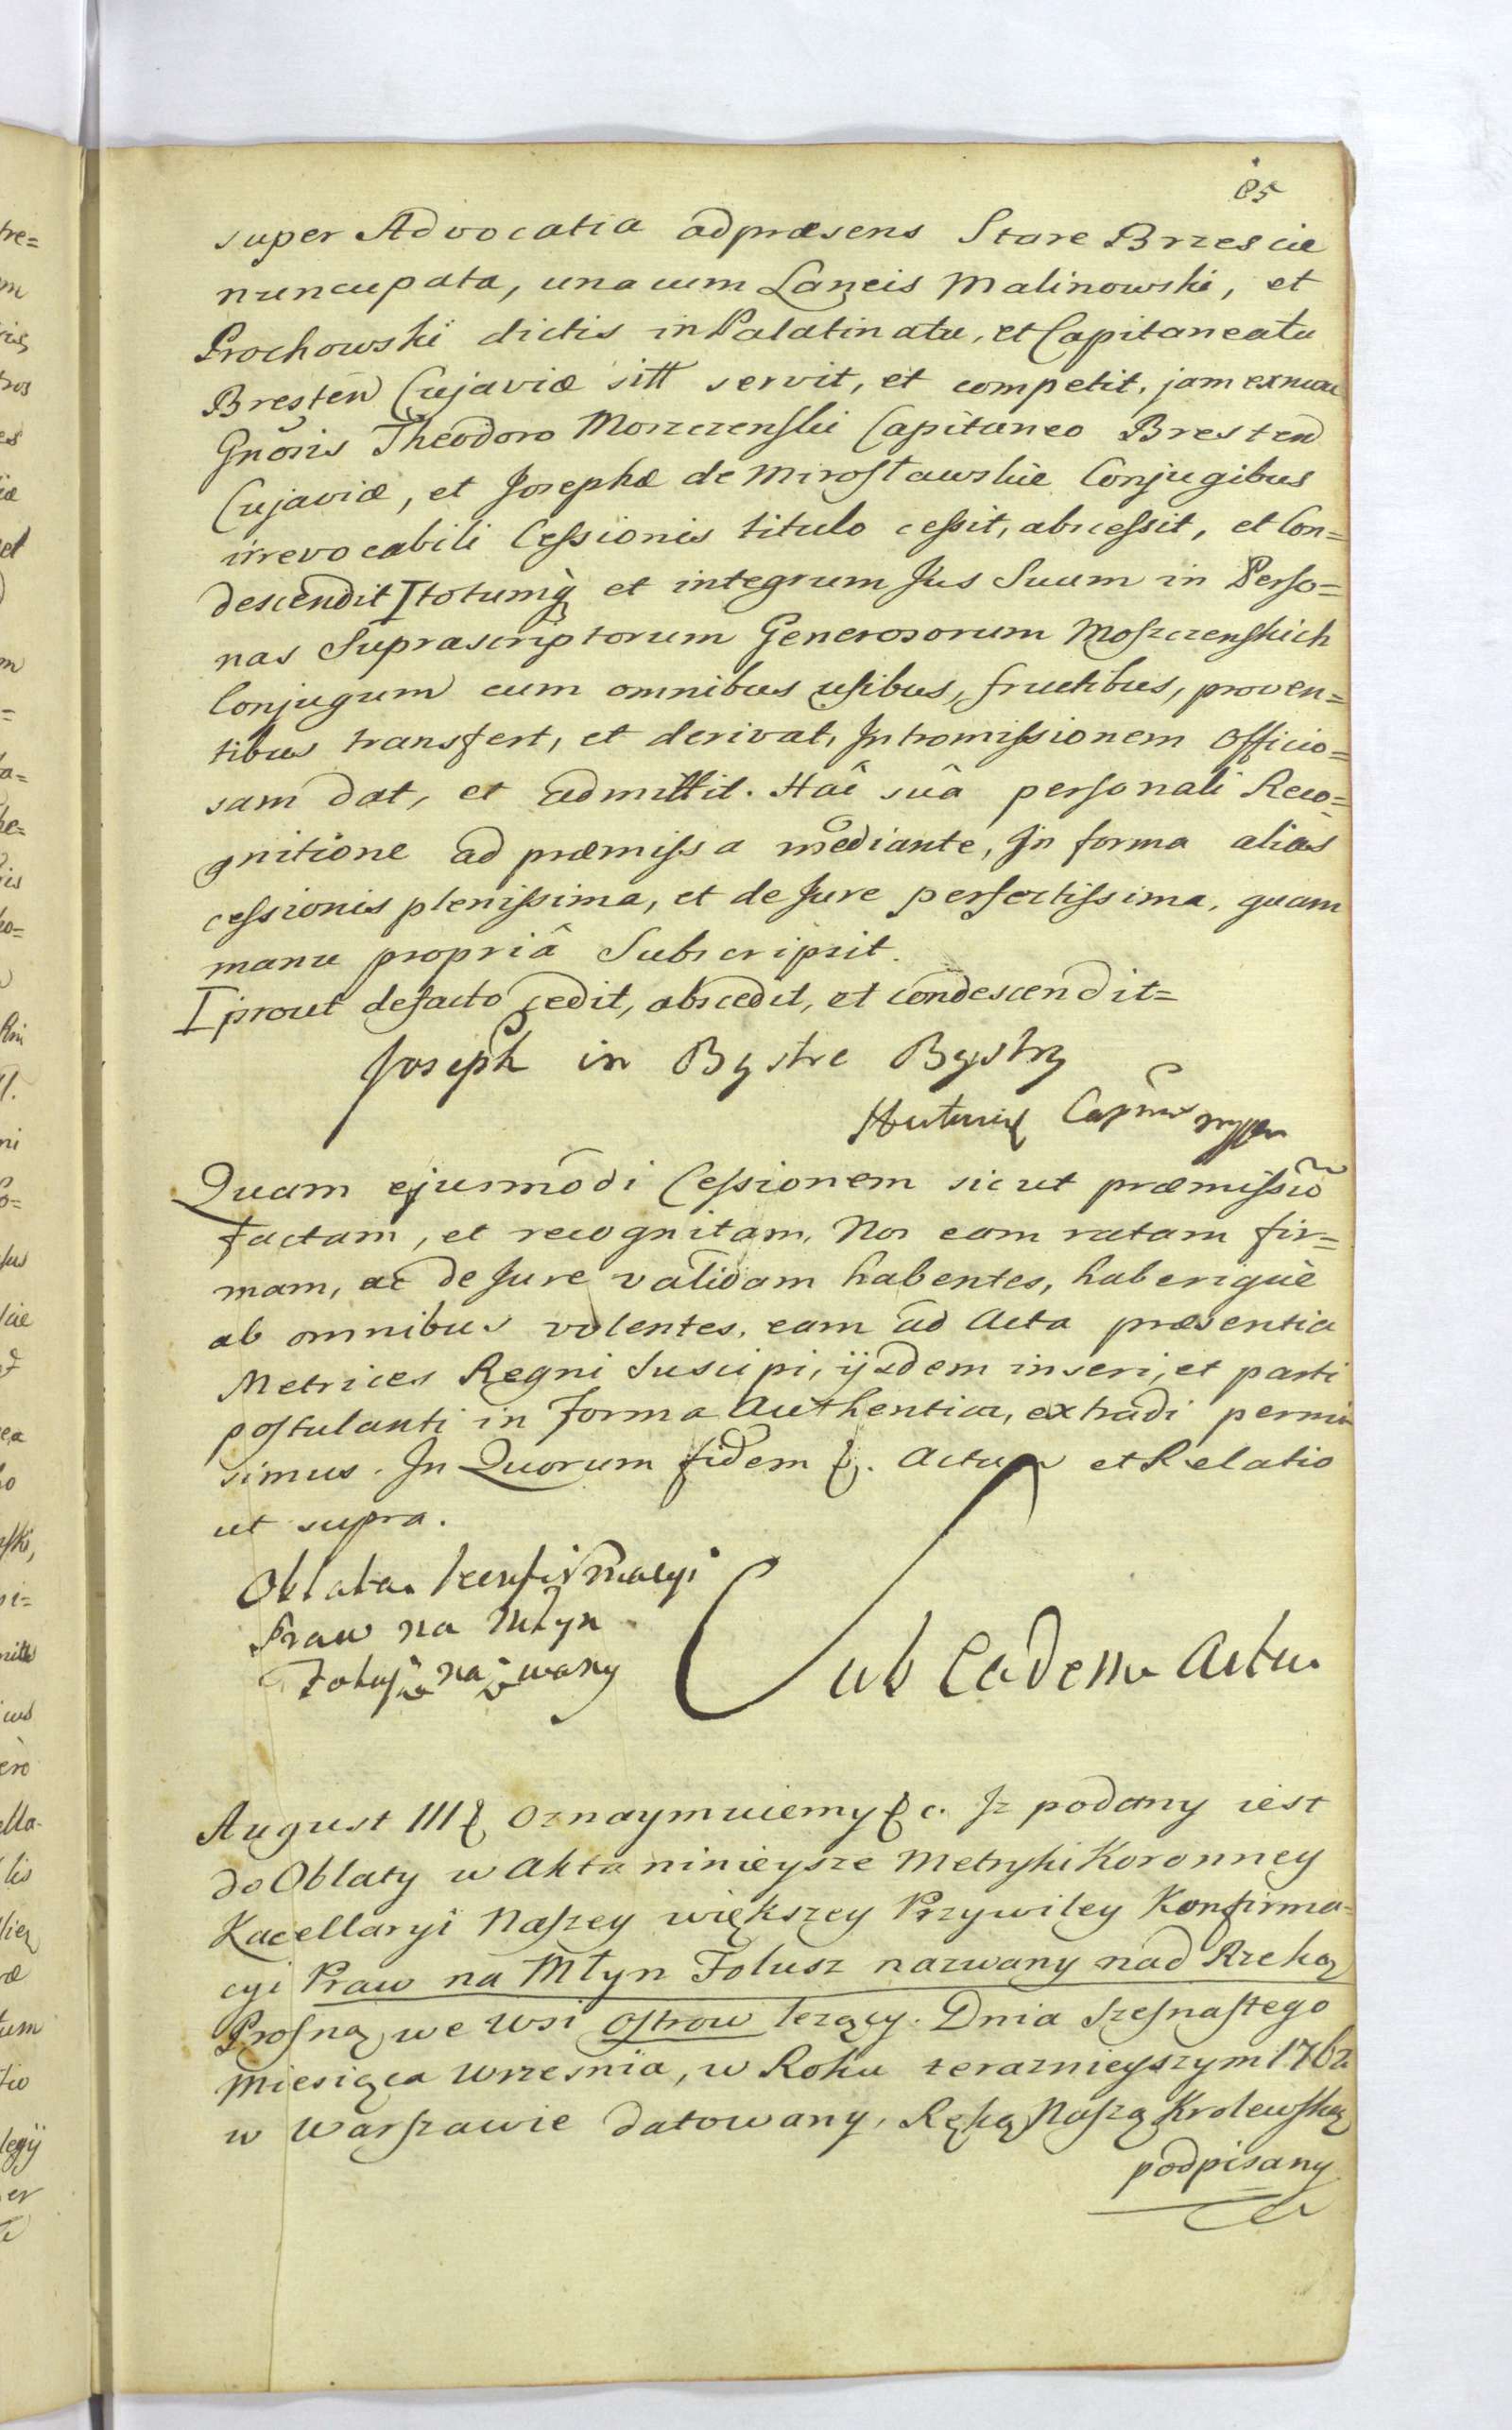 85
super Advocatia ad præsens Stare Brzescie
nuncupata, una cum Laneis Malinowski, et
Prochowski dictis in Palatinatu, et Capitaneatu
Bresten Cujaviæ sitt servit, et competit, jam ex nunc
Gnōsis Theodoro Moszczenski Capitaneo Bresten
Cujaviæ, et Josephæ de Mirosławskie Conjugibus
irrevocabili Cessionis titulo cessit, abscessit, et Con=
descendit I totumq̀ et integrum Jus Suum in Perso=
nas Suprascriptorum Generosorum Moszczenskich
Conjugum cum omnibus usibus, fructibus, proven=
tibus transfert, et derivat, Intromissionem Officio=
sam dat, et admittit. Hac suâ personali Reco=
gnitione ad præmissa mediante, In forma alias
cessionis plenissima, et de Jure perfectissima, quam
manu propriâ Subscripsit.
I prout defacto cedit, abscedit, et condescendit=
Joseph in Bystre Bystry
Quam ejusmōdi Cessionem sicut præmissũ
factam, et recognitam, Nos eam ratam fir=
mam, ac de Jure validam habentes, haberique
ab omnibus volentes, eam ad Acta præsentia
Metrices Regni Suscipi, ijsdem inseri, et parti
postulanti in forma Authentica, extradi permi
simus. In Quorum fidem &. Actum et Relatio
ut supra.
Oblata konfirmacyi
Praw na Młyn
Folusz nazwany
Sub Eadem Actu
August III & Oznaymuiemy &c. Iz podany iest
do Oblaty w Akta ninieysze Metryki Koronney
Kacellaryi Naszey większey Przywiley Konfirma=
cyi Praw na Młyn Folusz nazwany nad Rzeką
Prosną we wsi Ostrow lezący. Dnia Szesnastego
Miesiąca Wrzesnia, w Roku terazniejszym 1762
w Warszawie datowany, Ręką Naszą Krolewską
podpisany